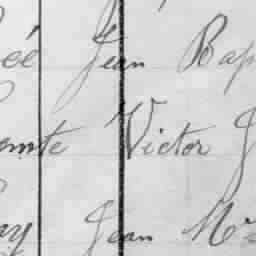 ée Jean Bap
emte Victor J
ay Jean Mr